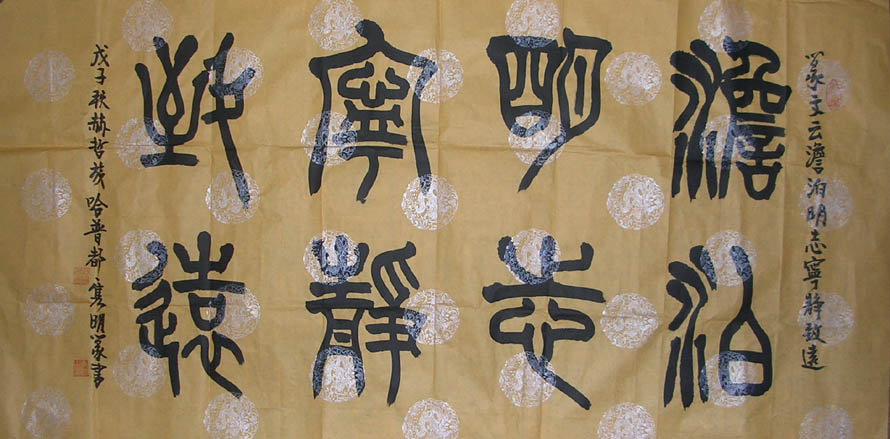 篆文云澹泊明志寧靜致遠
澹泊
明志
寧靜
致遠
戊子秋赫哲族哈普都隽明篆書